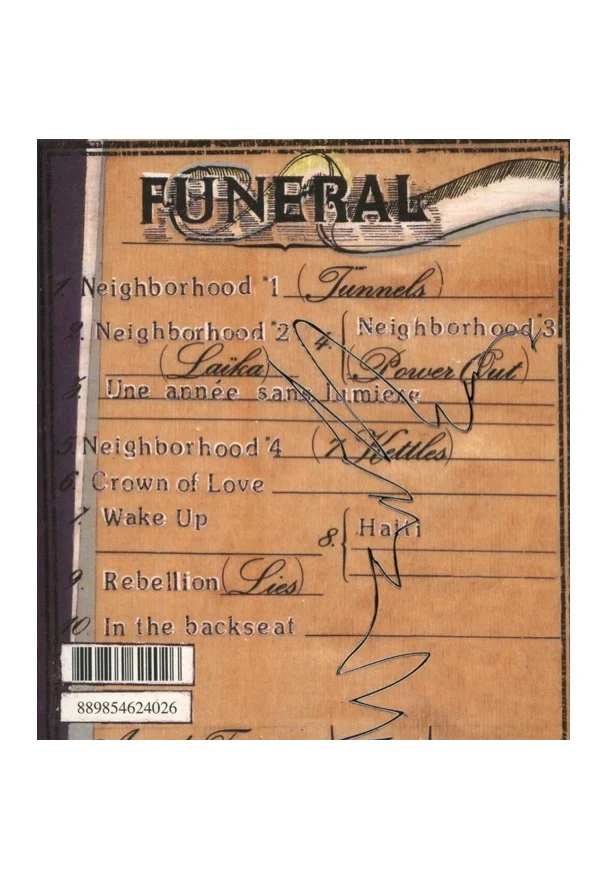 FUNERAL
1. Neighborhood #1 (Tunnels)
2. Neighborhood #2 (Laïka)
3. Une année sans lumiere
4. Neighborhood #3 (Power Out)
5. Neighborhood #4 (7 Kettles)
6. Crown of Love
7. Wake Up
8. Haiti
9. Rebellion (Lies)
10. In the backseat
889854624026